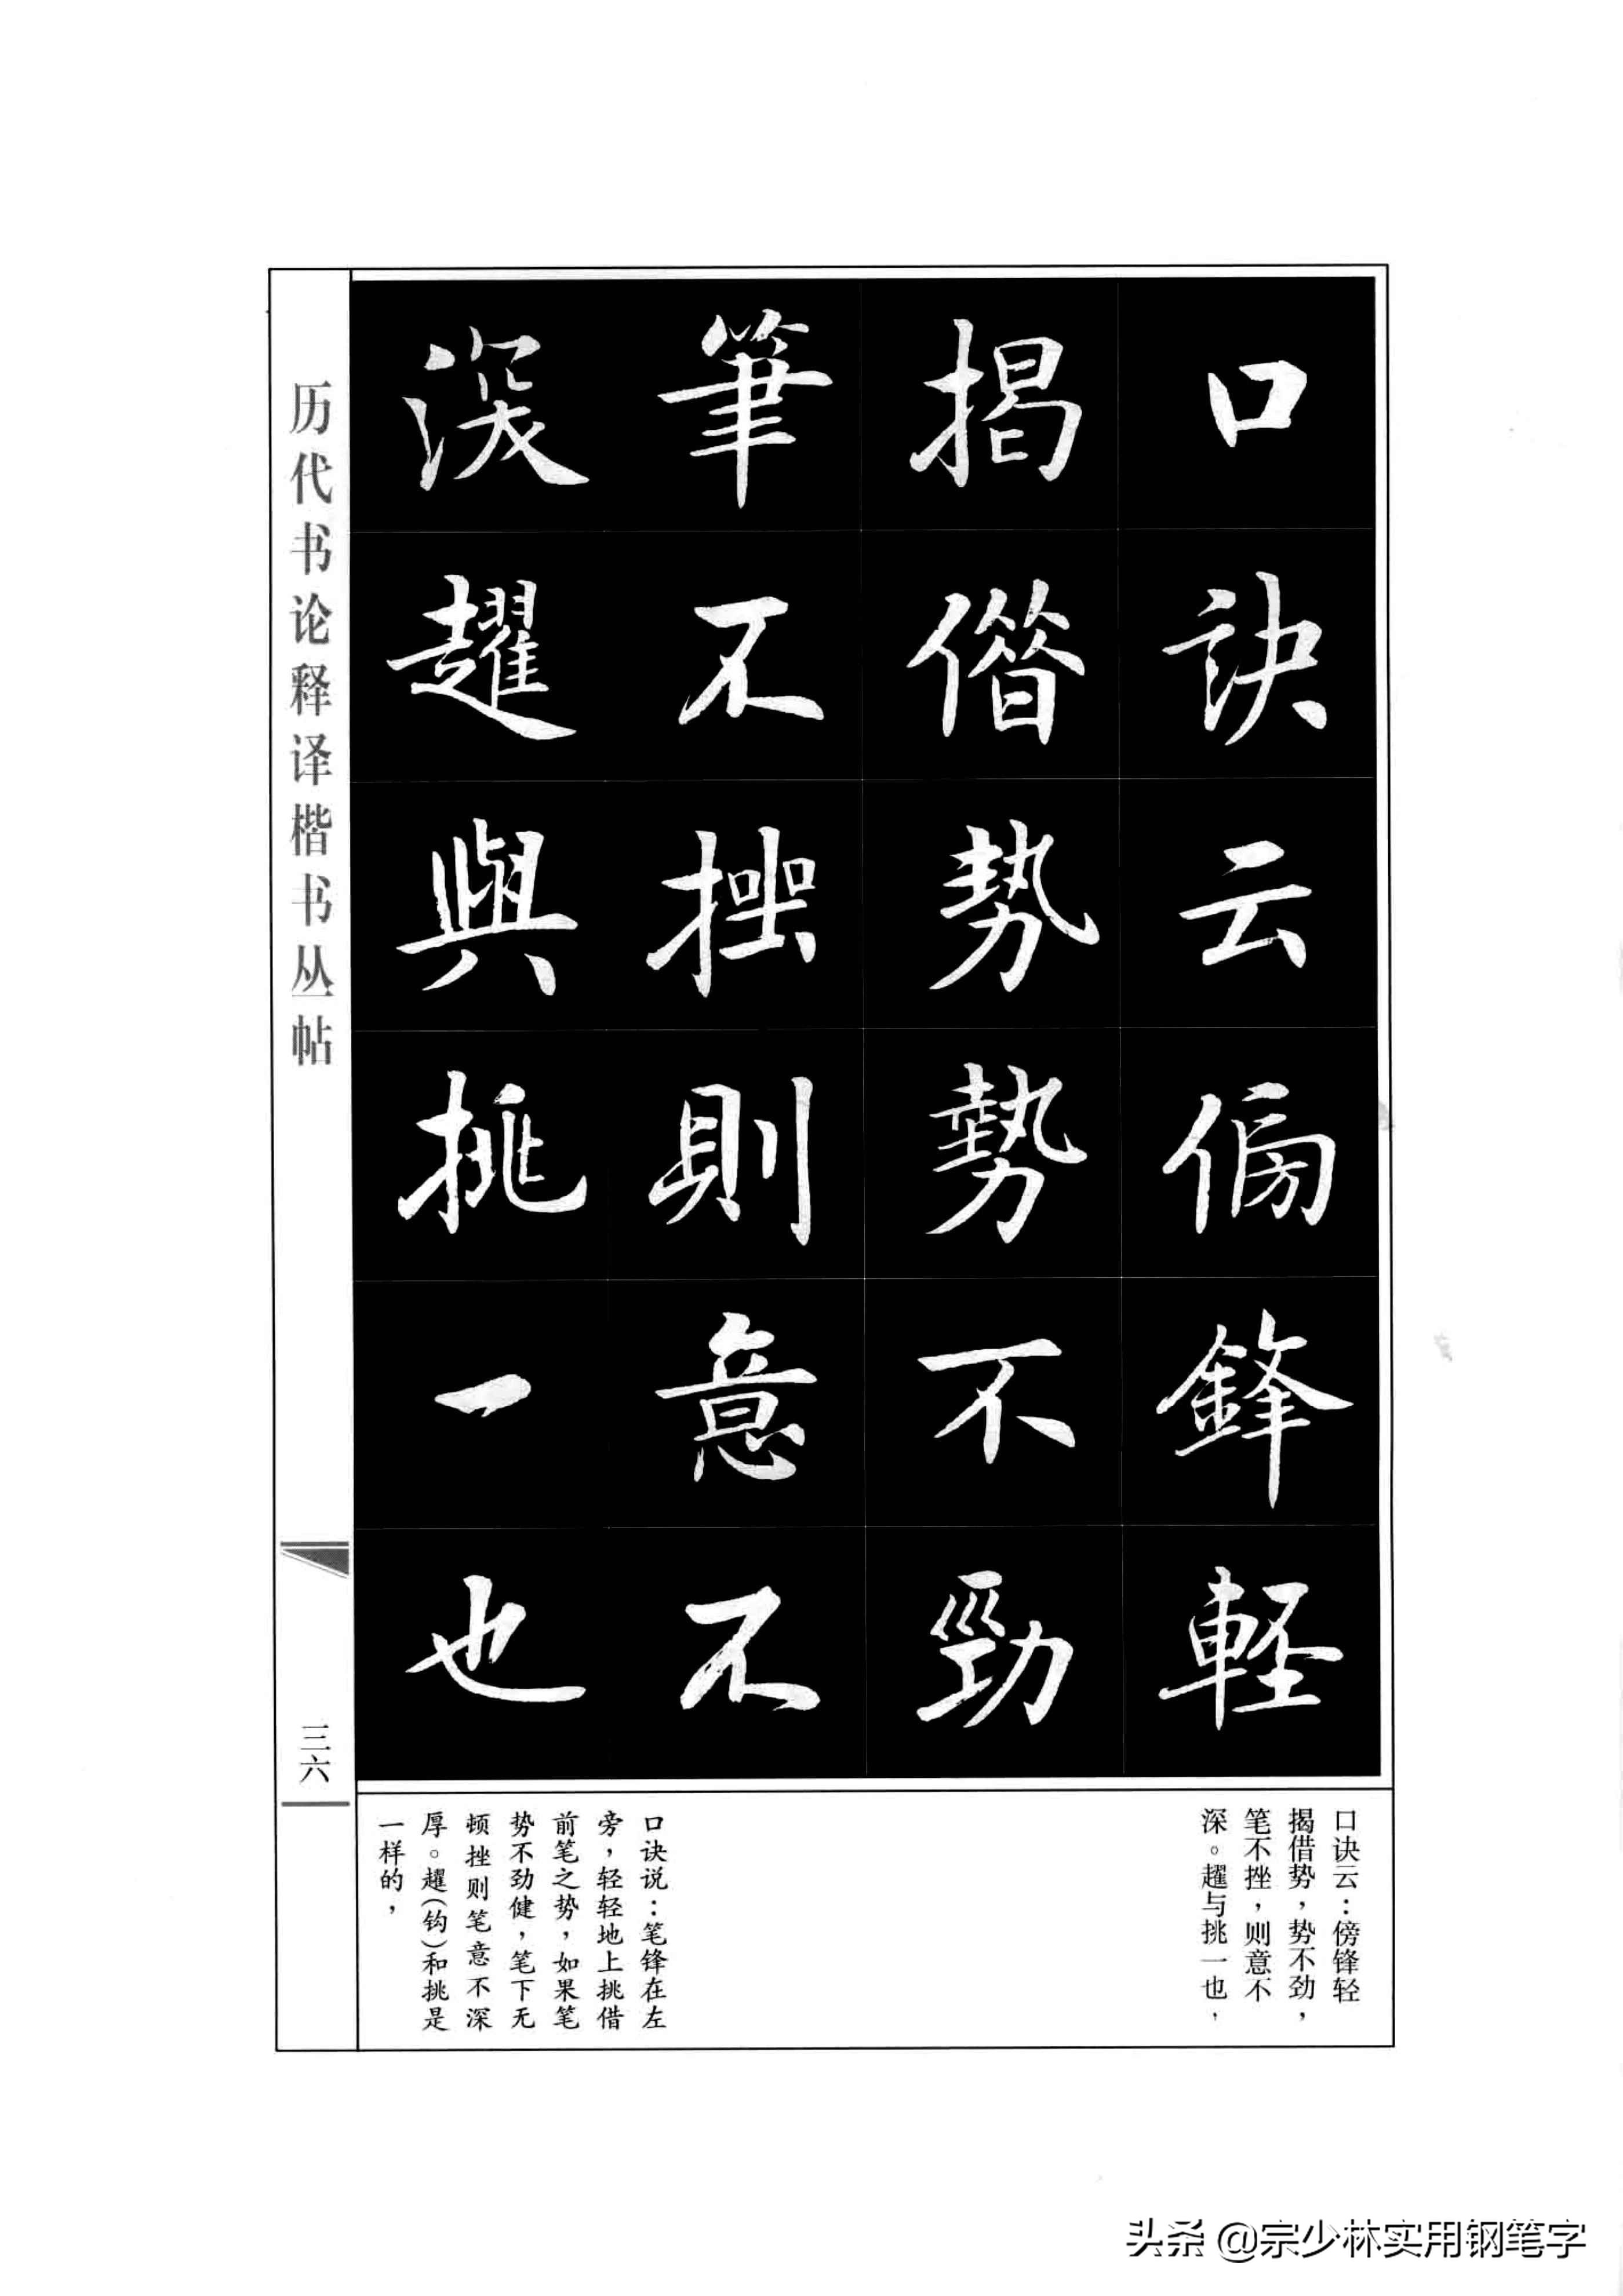 口訣云傍鋒輕
揭借势勢不勁
筆不挫則意不
深趯與挑一也
历代书论释译楷书丛帖
三六
口诀云：傍锋轻
揭借势，势不劲，
笔不挫，则意不
深。趯与挑一也，
口诀说：笔锋在左
旁，轻轻地上挑借
前笔之势，如果笔
势不劲健，笔下无
顿挫则笔意不深
厚。趯（钩）和挑是
一样的，
头条 @宗少林实用钢笔字